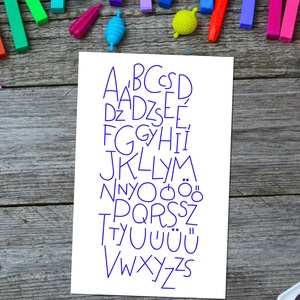 A B C CS D
Á DZ DZS E É
F G GY H I Í
J K L LY M
N NY O Ó Ö Ő
P Q R S SZ
T TY U Ú Ü Ű
V W X Y Z ZS